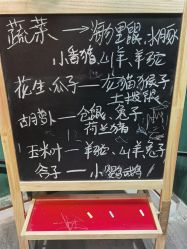 蔬菜→海狸鼠、水豚
小香猪、山羊、羊驼
花生、瓜子→龙猫、猴子
土拨鼠
胡萝卜→仓鼠、兔子
荷兰猪
玉米叶→羊驼、山羊、兔子
谷子→小鹦鹉